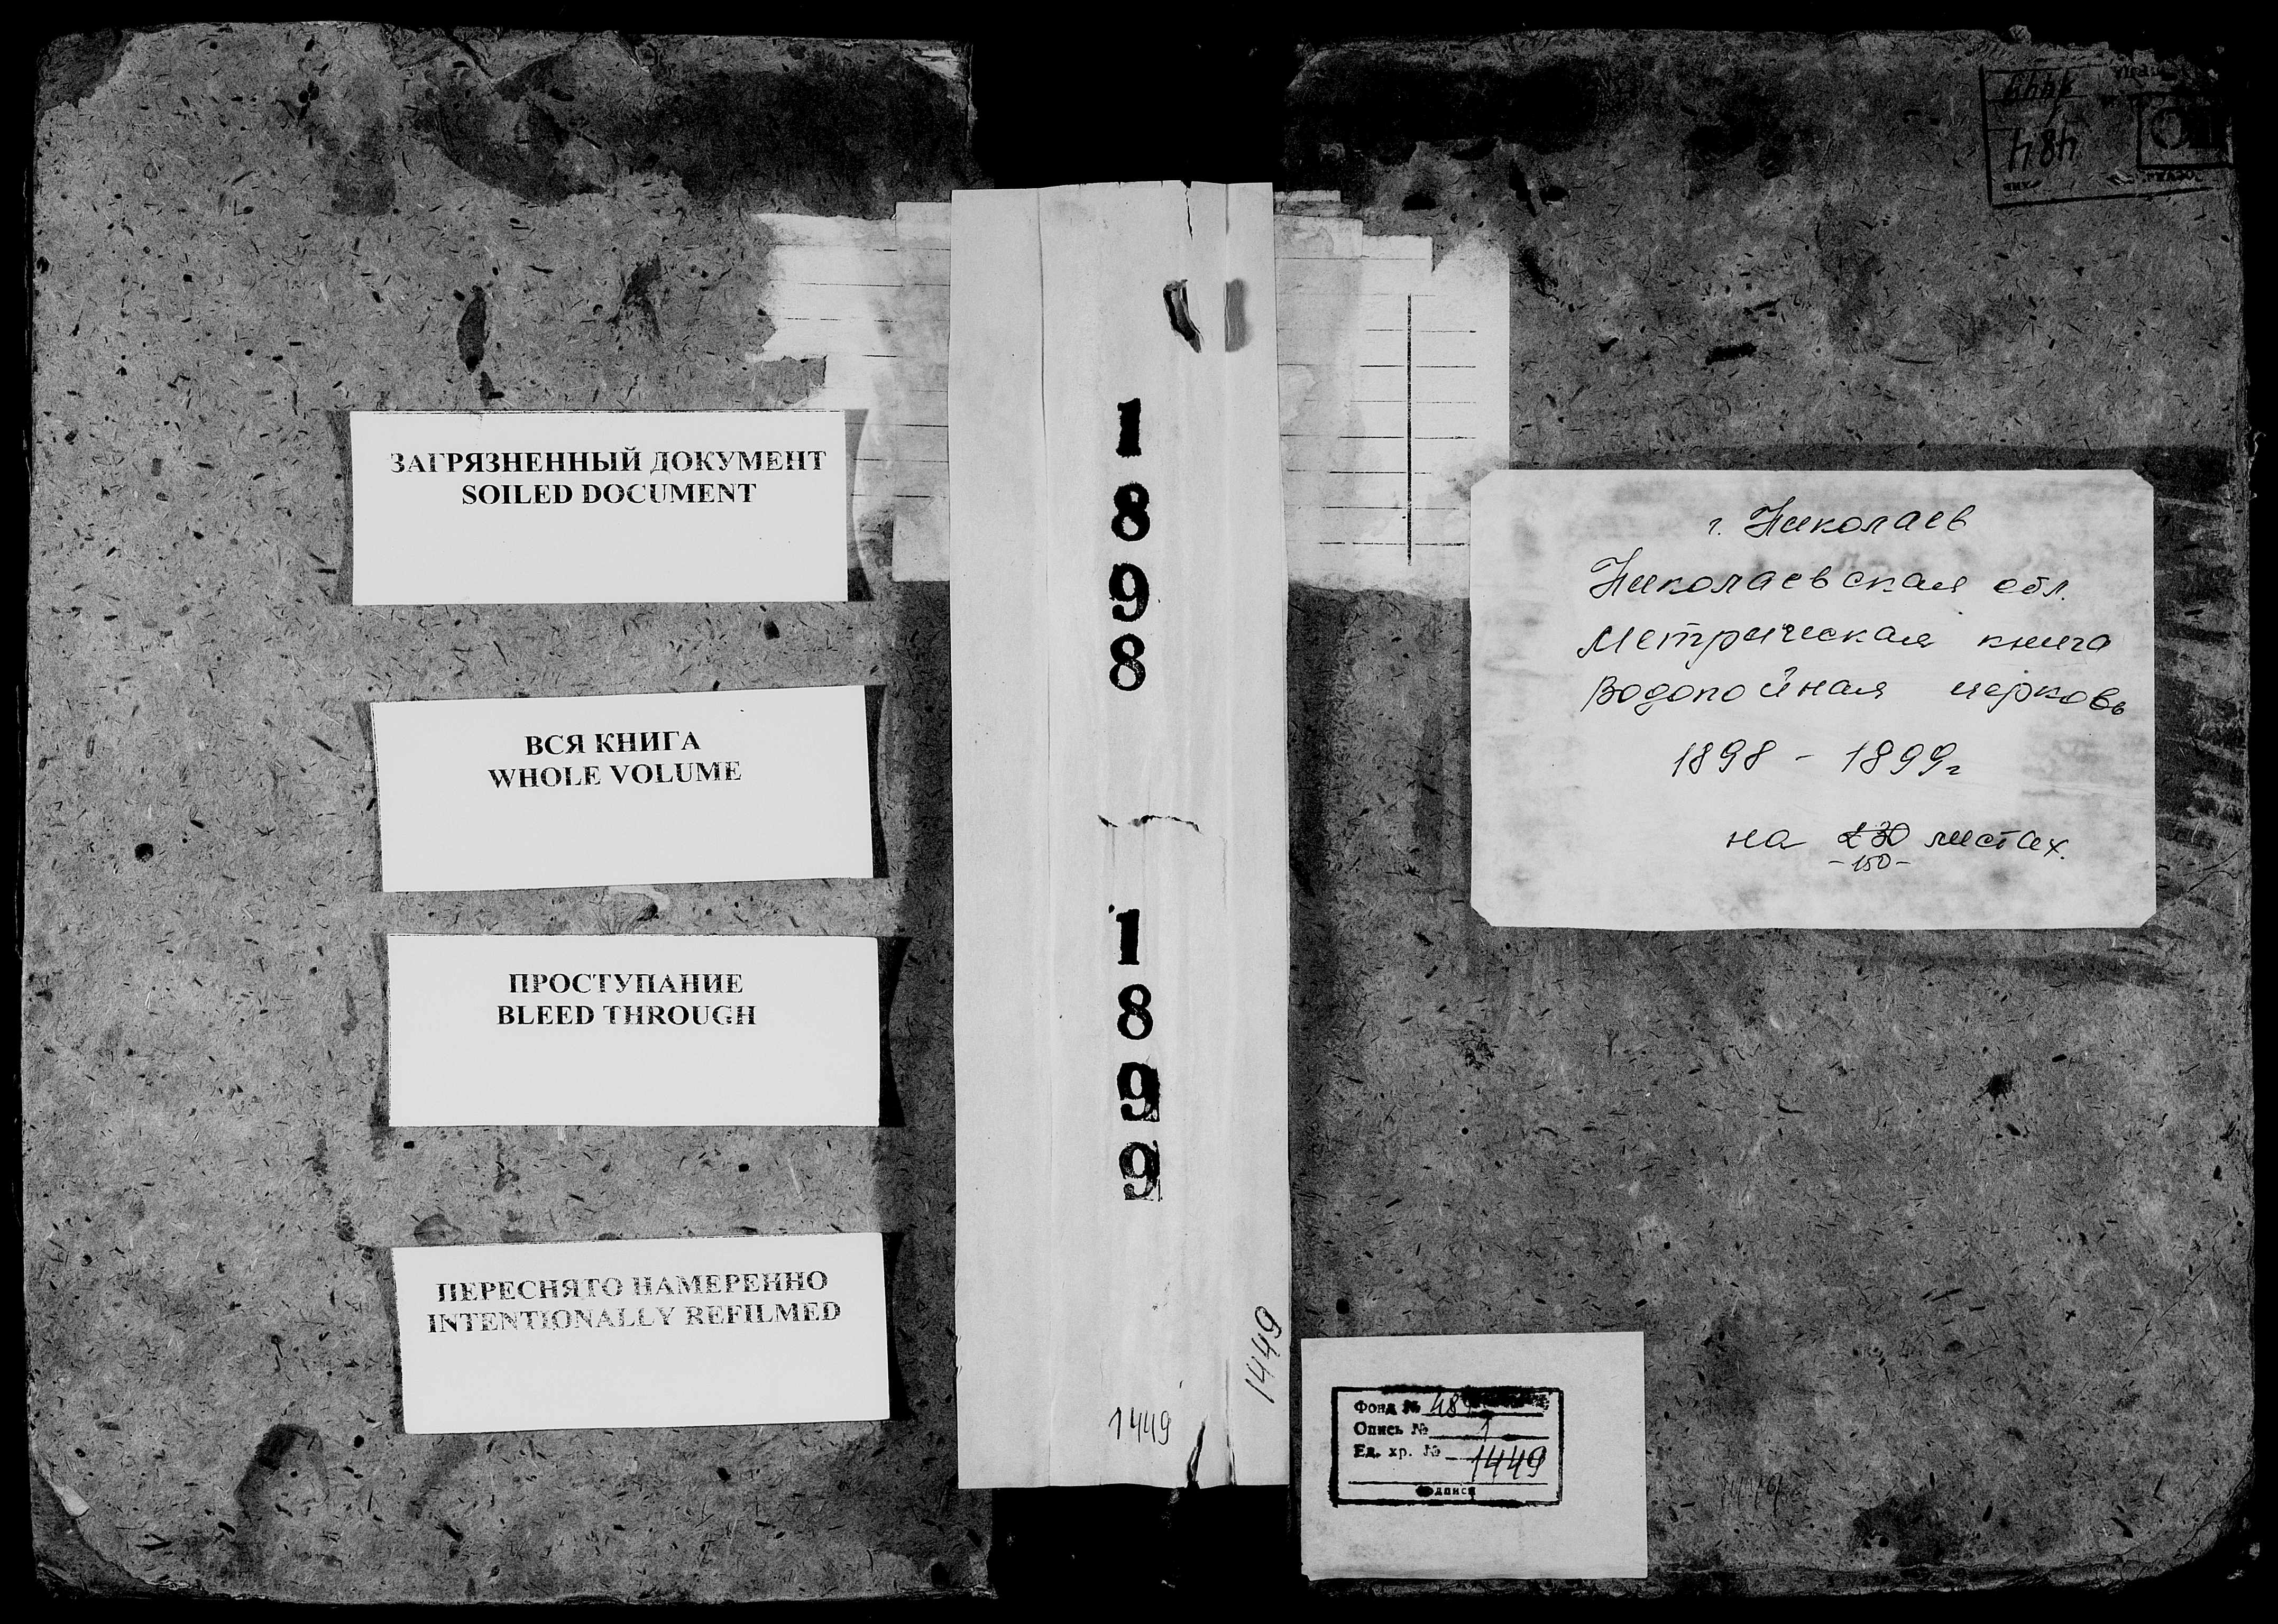 ЗАГРЯЗНЕННЫЙ ДОКУМЕНТ
SOILED DOCUMENT
ВСЯ КНИГА
WHOLE VOLUME
ПРОСТУПАНИЕ
BLEED THROUGH
ПЕРЕСНЯТО НАМЕРЕННО
INTENTIONALLY REFILMED
1898
1899
1449
1449
484
г. Николаев
Николаевская обл.
Метрическая книга
Водопойная церковь
1898 - 1899г
на 230 листах.
-150-
Фонд № 484
Опись № 1
Ед. хр. № 1449
1449